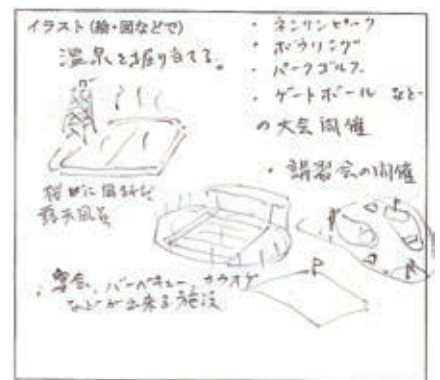 イラスト(絵・図などで)
温泉を掘り当てる。
・ネンリンピック
・ボウリング
・パークゴルフ
・ゲートボール など
の大会開催
・講習会の開催
露天風呂
・宴会、バーベキュー、カラオケ
などが出来る施設